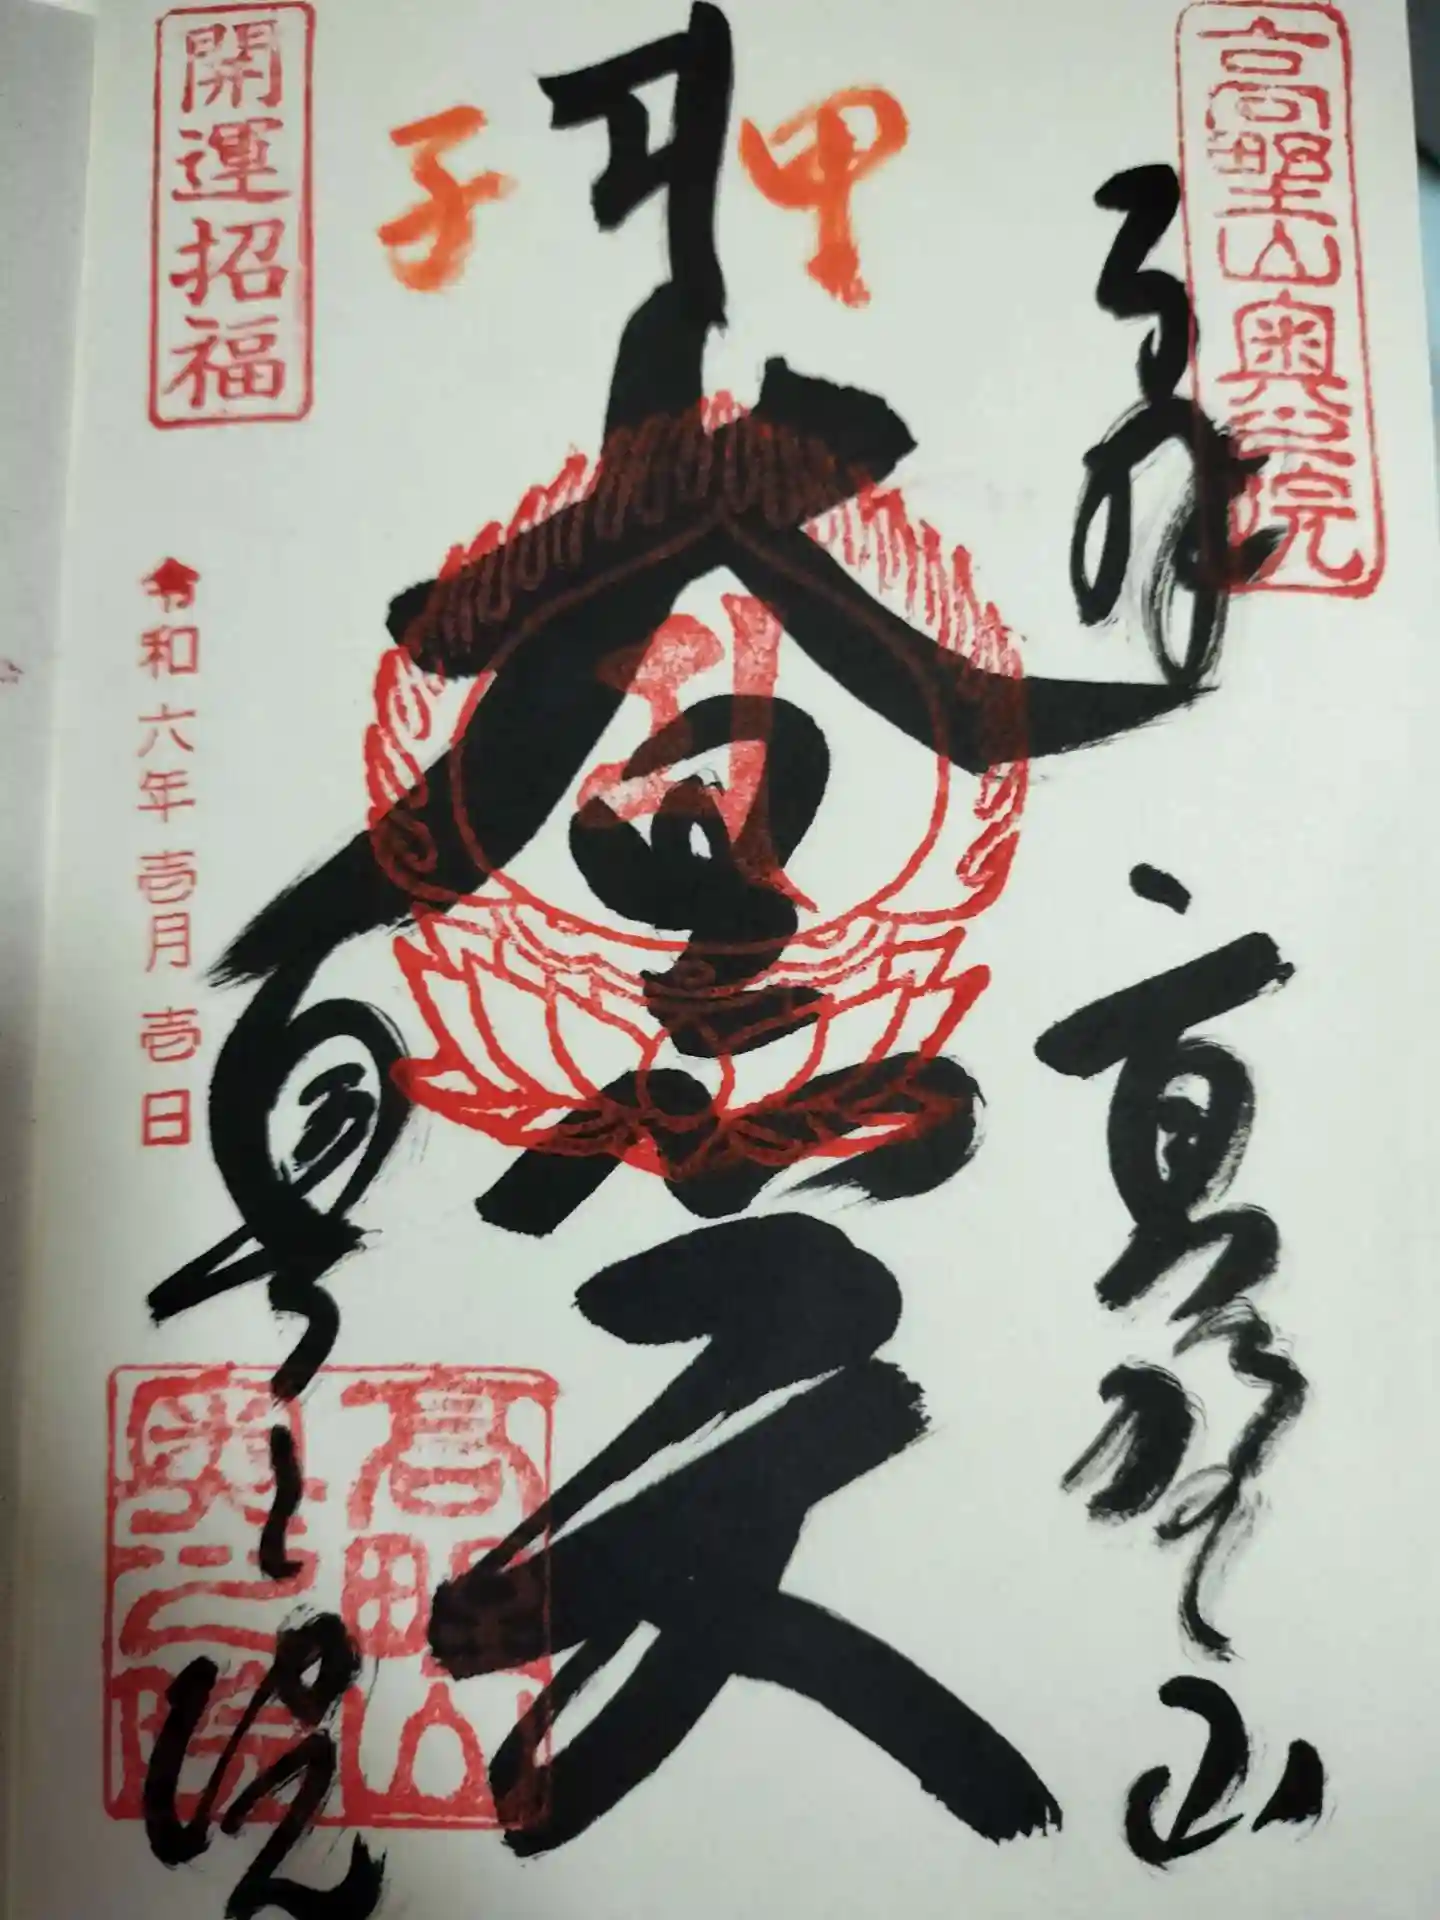 高野山奥之院
奉拝
高野山
甲
子
大黒天
奥之院
開運招福
令和六年壱月壱日
高野山
奥之院